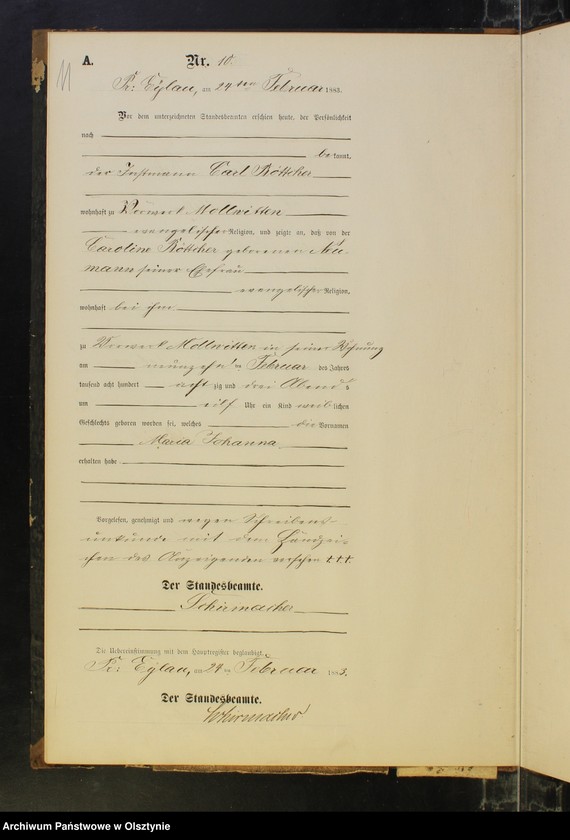 11
A. Nr. 10.
Pr: Eylau, am 24 ten Februar 1883.
Vor dem unterzeichneten Standesbeamten erschien heute, der Persönlichkeit
nach
bekannt,
der Instmann Carl Böttcher
wohnhaft zu Vorwerk Mollwitten
evangelischer Religion, und zeigte an, daß von der
Caroline Böttcher geborenen Neu-
mann seiner Ehefrau
evangelischer Religion,
wohnhaft bei ihm
zu Vorwerk Mollwitten in seiner Wohnung
am neunzehn ten Februar des Jahres
tausend acht hundert achtzig und drei Abends
um eilf Uhr ein Kind weiblichen
Geschlechts geboren worden sei, welches die Vornamen
Maria Johanna
erhalten habe
Vorgelesen, genehmigt und wegen Schreibens-
unkunde mit dem Handzei-
chen des Anzeigenden versehen ttt.
Der Standesbeamte.
Schirmacher
Die Uebereinstimmung mit dem Hauptregister beglaubigt.
Pr: Eylau, am 24 ten Februar 1883.
Der Standesbeamte.
Schirmacher
Archiwum Państwowe w Olsztynie